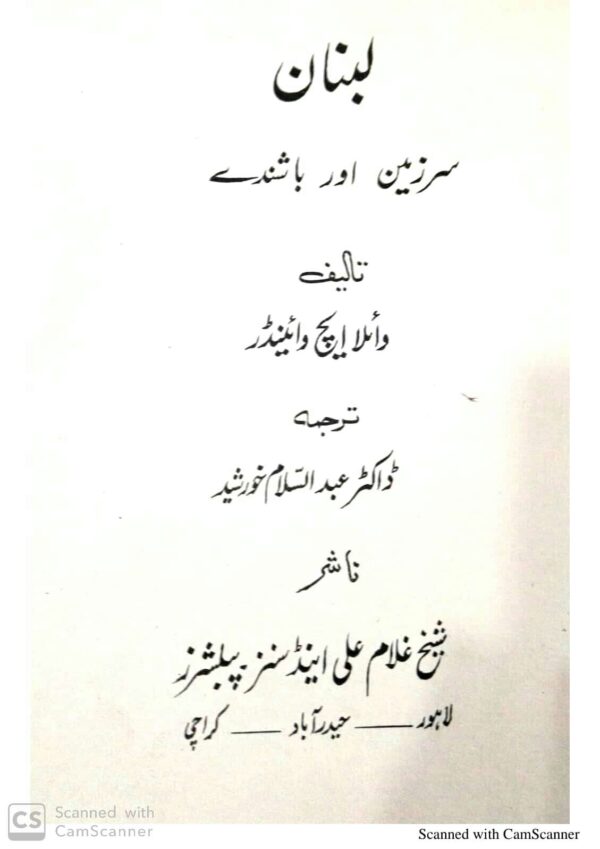 لبنان
سرزمین اور باشندے
تالیف
وائلا ایچ وائینڈر
ترجمہ
ڈاکٹر عبدالسّلام خورشید
ناشر
شیخ غلام علی اینڈ سنز - پبلشرز
لاہور — حیدرآباد — کراچی
CS Scanned with
CamScanner
Scanned with CamScanner